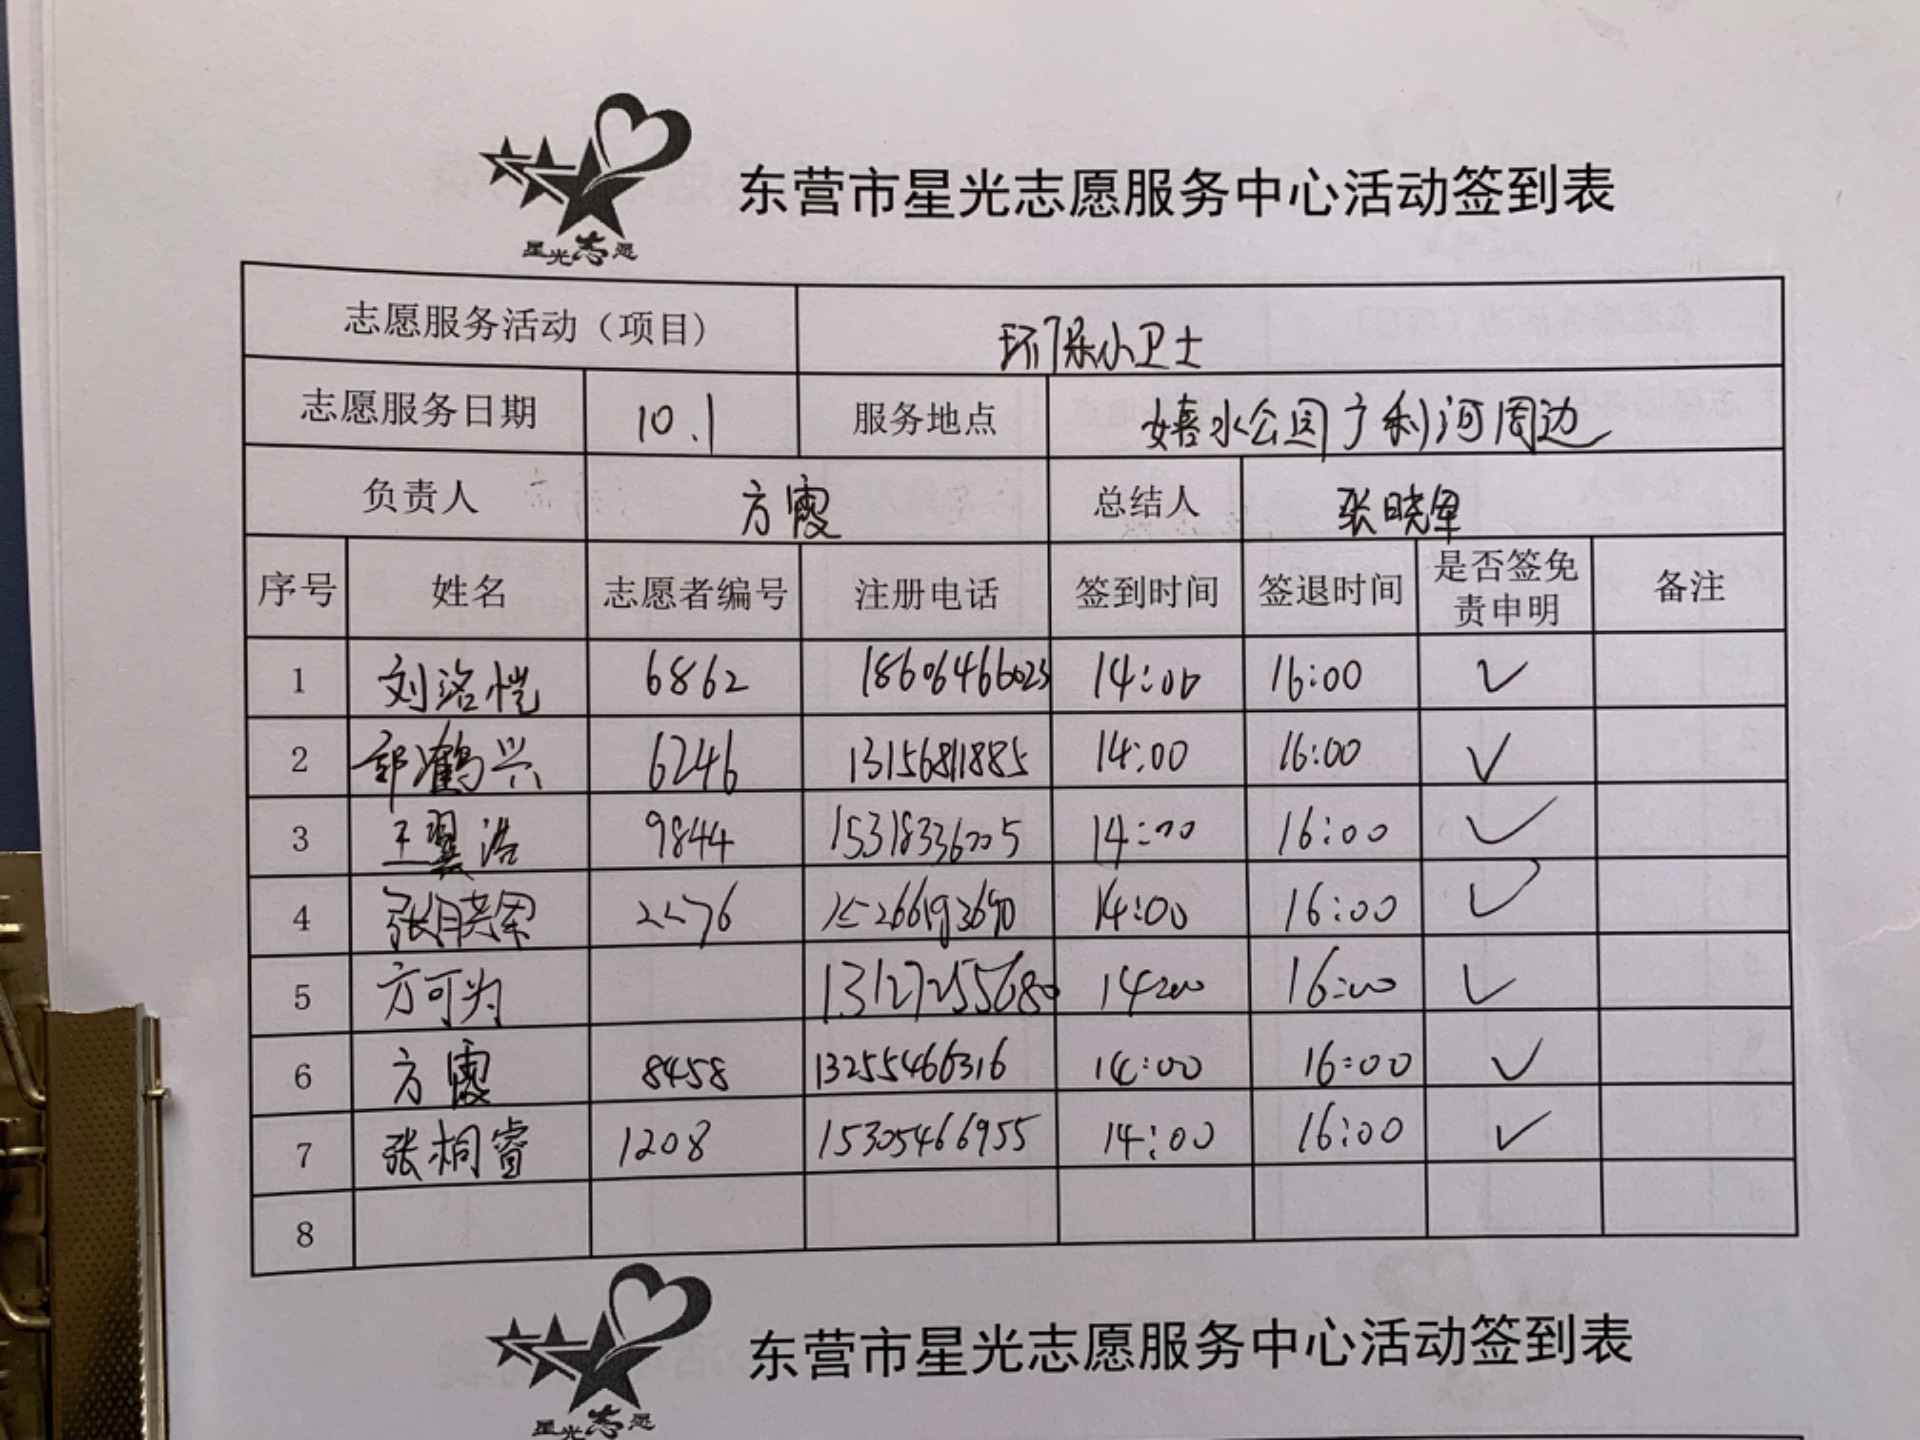 星光志愿
东营市星光志愿服务中心活动签到表
志愿服务活动（项目） 环保小卫士
志愿服务日期 10.1 服务地点 嬉水公园广利河周边
负责人 方霞 总结人 张晓军
序号 姓名 志愿者编号 注册电话 签到时间 签退时间 是否签免责申明 备注
1 刘洛恺 6862 18606466023 14:00 16:00 ✓
2 郭鹤兴 6246 13156811885 14:00 16:00 ✓
3 王翼浩 9844 15318336005 14:00 16:00 ✓
4 张晓军 2276 15266193690 14:00 16:00 ✓
5 方可为 13127255680 14:00 16:00 ✓
6 方霞 8458 13255466316 14:00 16:00 ✓
7 张桐睿 1208 15305466955 14:00 16:00 ✓
8
星光志愿
东营市星光志愿服务中心活动签到表